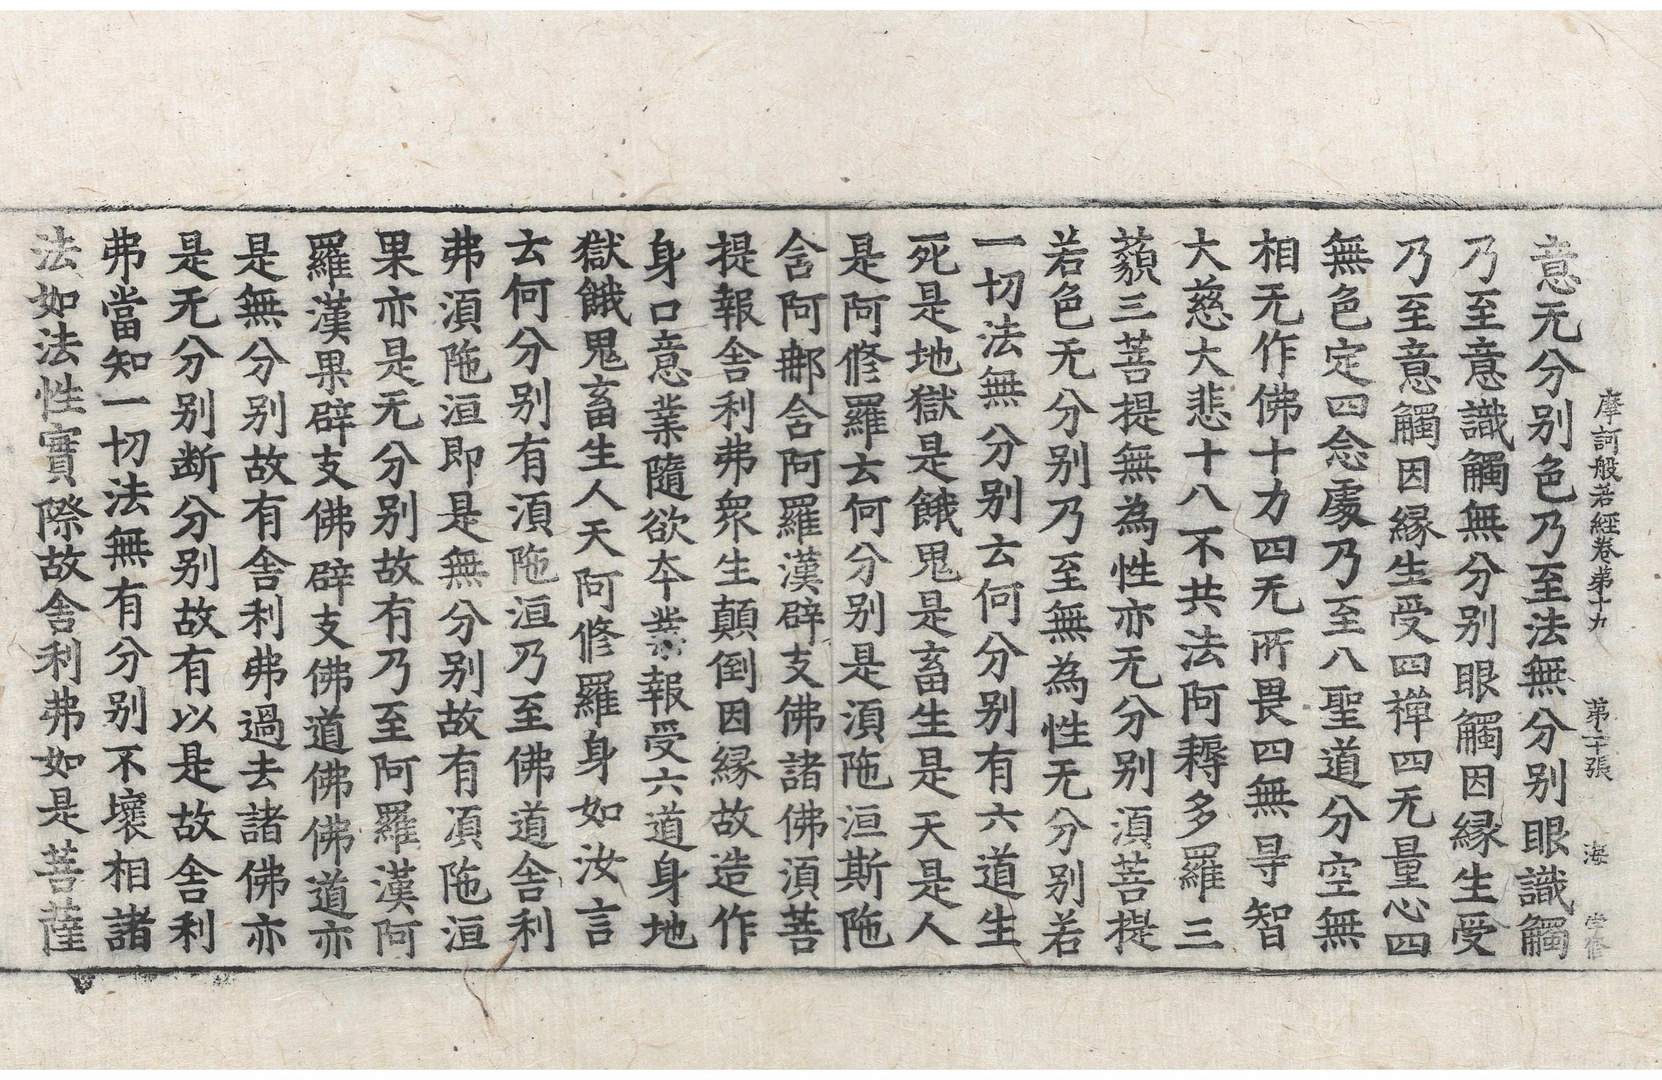 摩訶般若經卷第十九 第二十張 海
意无分别色乃至法無分别眼識觸
乃至意識觸無分别眼觸因緣生受
乃至意觸因緣生受四禪四无量心四
無色定四念處乃至八聖道分空無
相无作佛十力四无所畏四無㝵智
大慈大悲十八不共法阿耨多羅三
藐三菩提無為性亦无分别湏菩提
若色无分别乃至無為性无分别若
一切法無分别云何分别有六道生
死是地獄是餓鬼是畜生是天是人
是阿修羅云何分别是湏陁洹斯陁
含阿那含阿羅漢辟支佛諸佛湏菩
提報舎利弗衆生顛倒因緣故造作
身口意業隨欲夲業報受六道身地
獄餓鬼畜生人天阿修羅身如汝言
云何分别有湏陁洹乃至佛道舎利
弗湏陁洹即是無分别故有湏陁洹
果亦是无分别故有乃至阿羅漢阿
羅漢果辟支佛辟支佛道佛佛道亦
是無分别故有舎利弗過去諸佛亦
是无分别断分别故有以是故舎利
弗當知一切法無有分别不壞相諸
法如法性實際故舎利弗如是菩薩